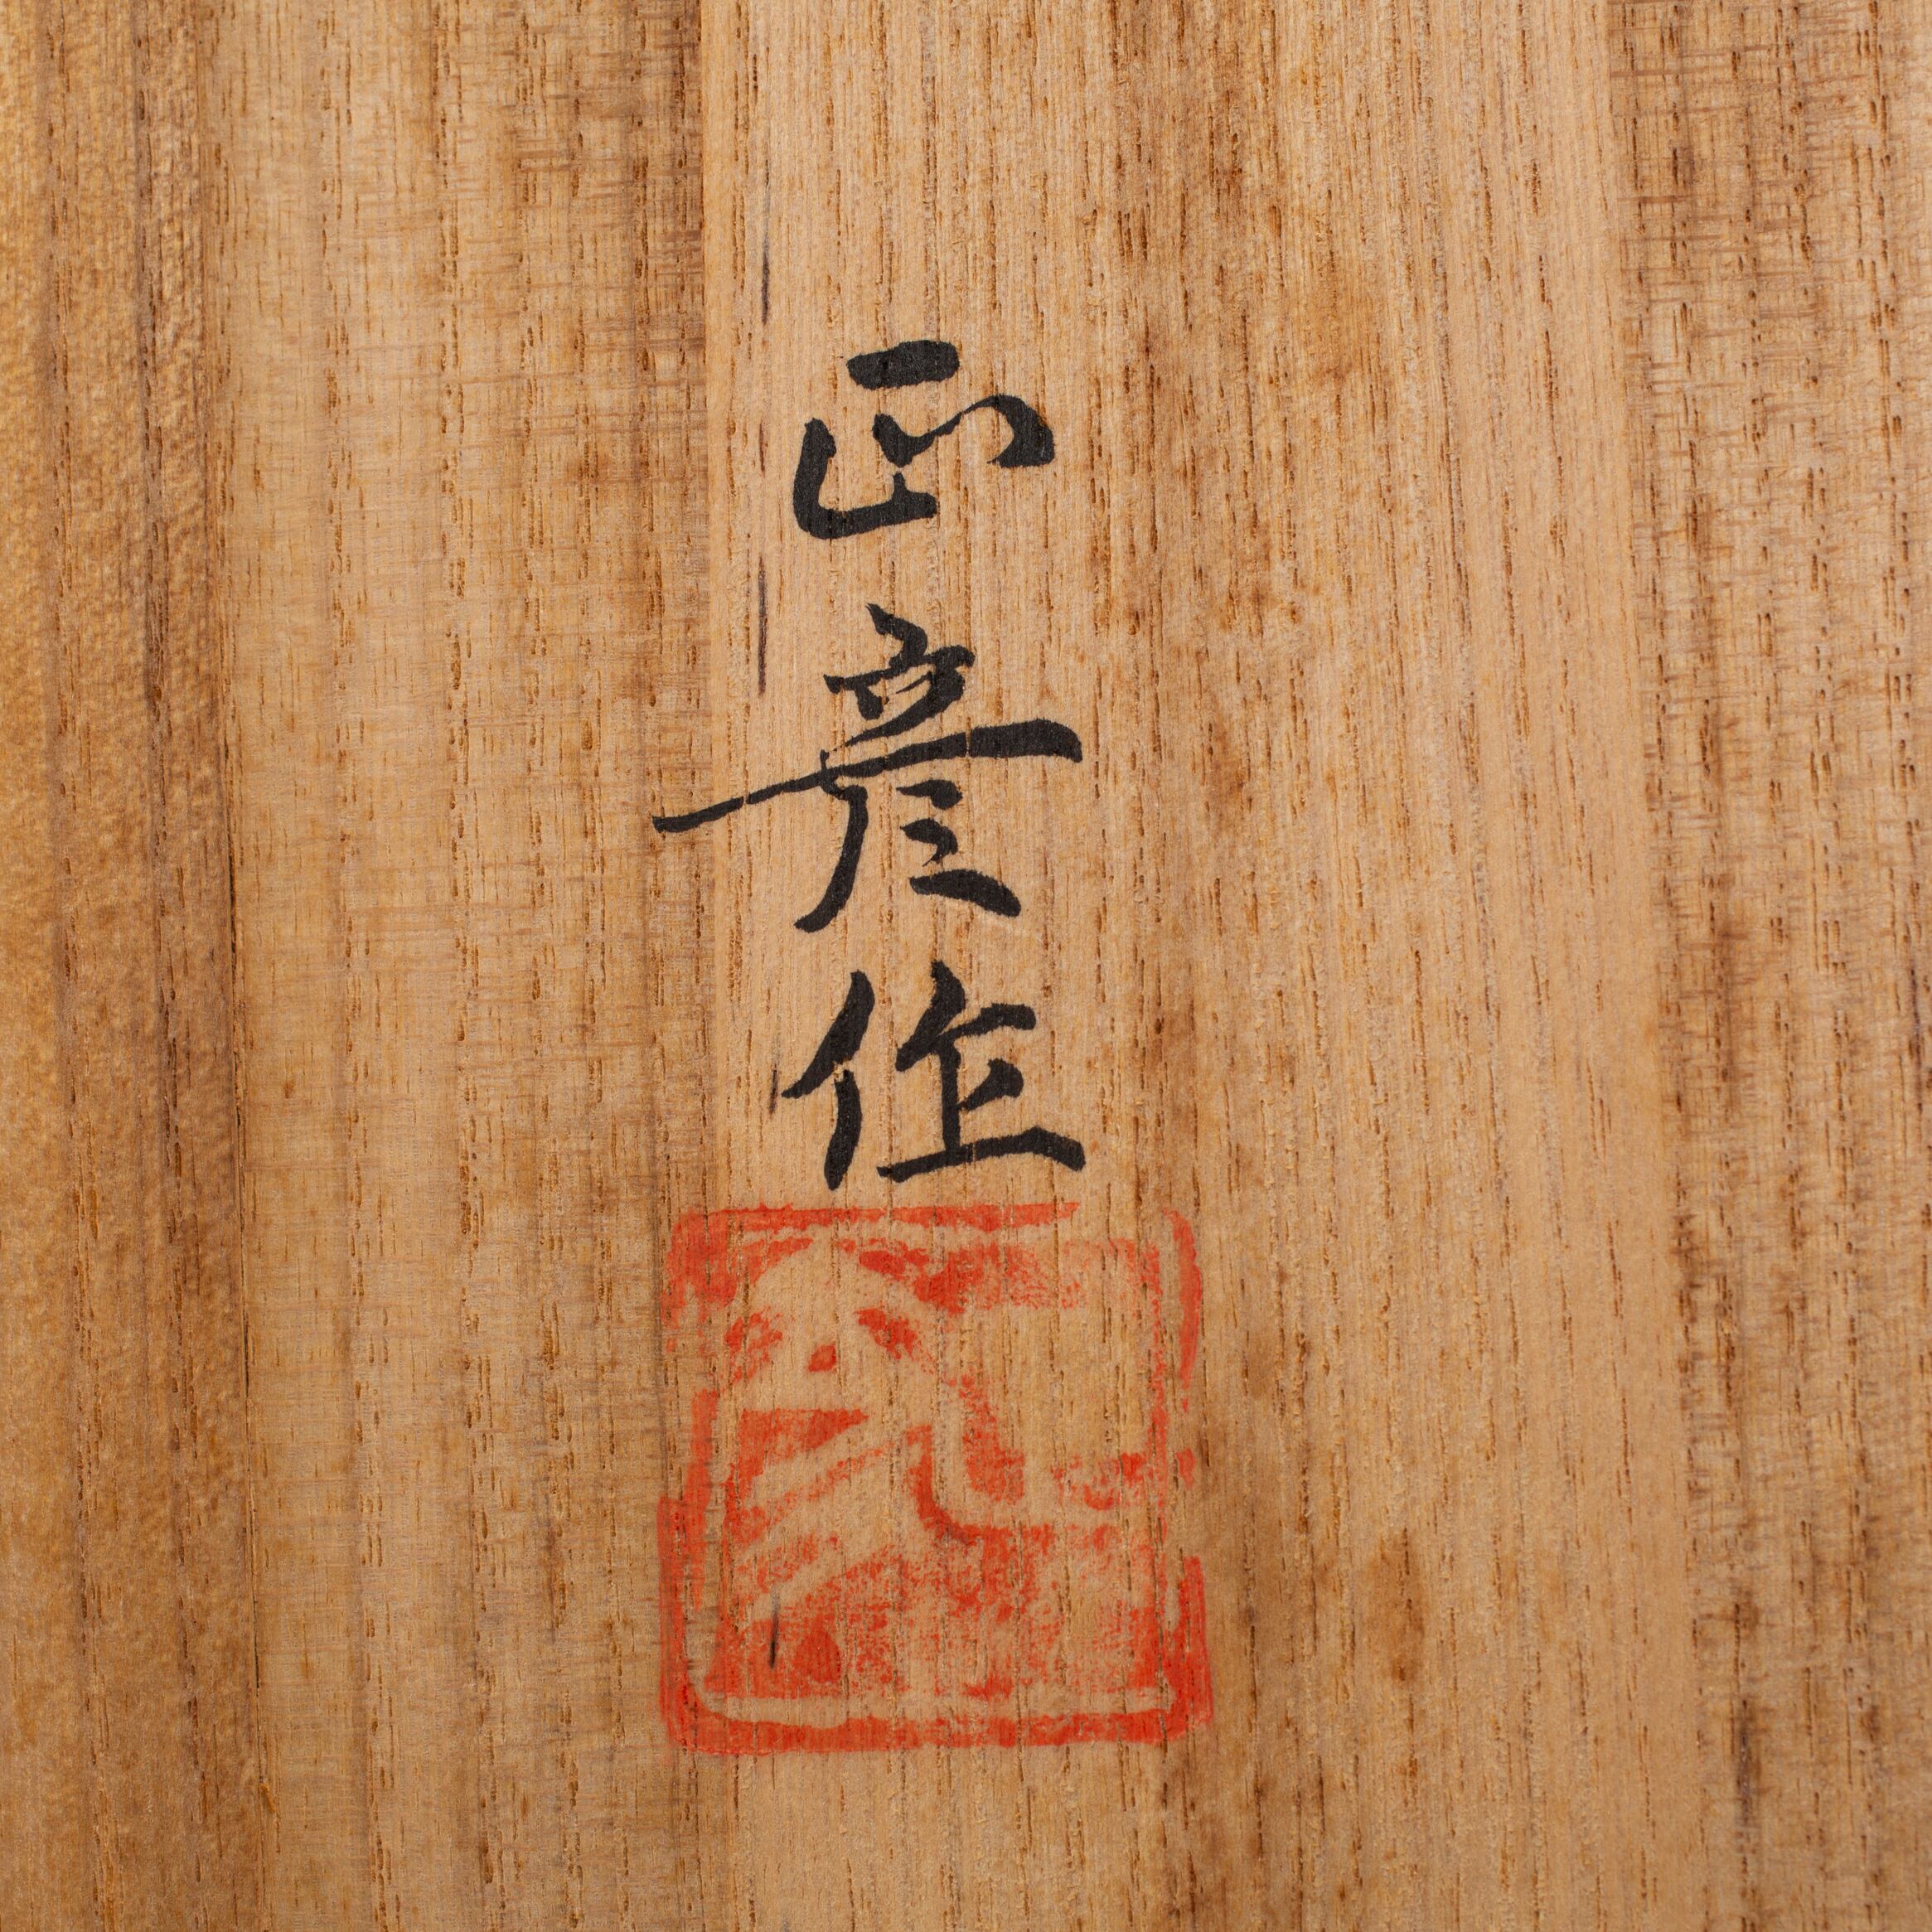 正彦作